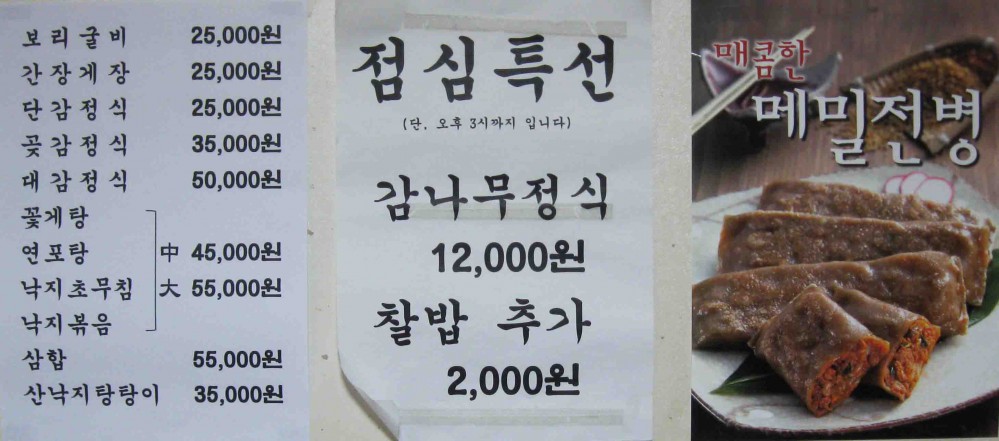 보리굴비 25,000원
간장게장 25,000원
단감정식 25,000원
곶감정식 35,000원
대감정식 50,000원
꽃게탕
연포탕 中 45,000원
낙지초무침 大 55,000원
낙지볶음
삼합 55,000원
산낙지탕탕이 35,000원
점심특선
(단, 오후 3시까지 입니다)
감나무정식
12,000원
찰밥 추가
2,000원
매콤한
메밀전병